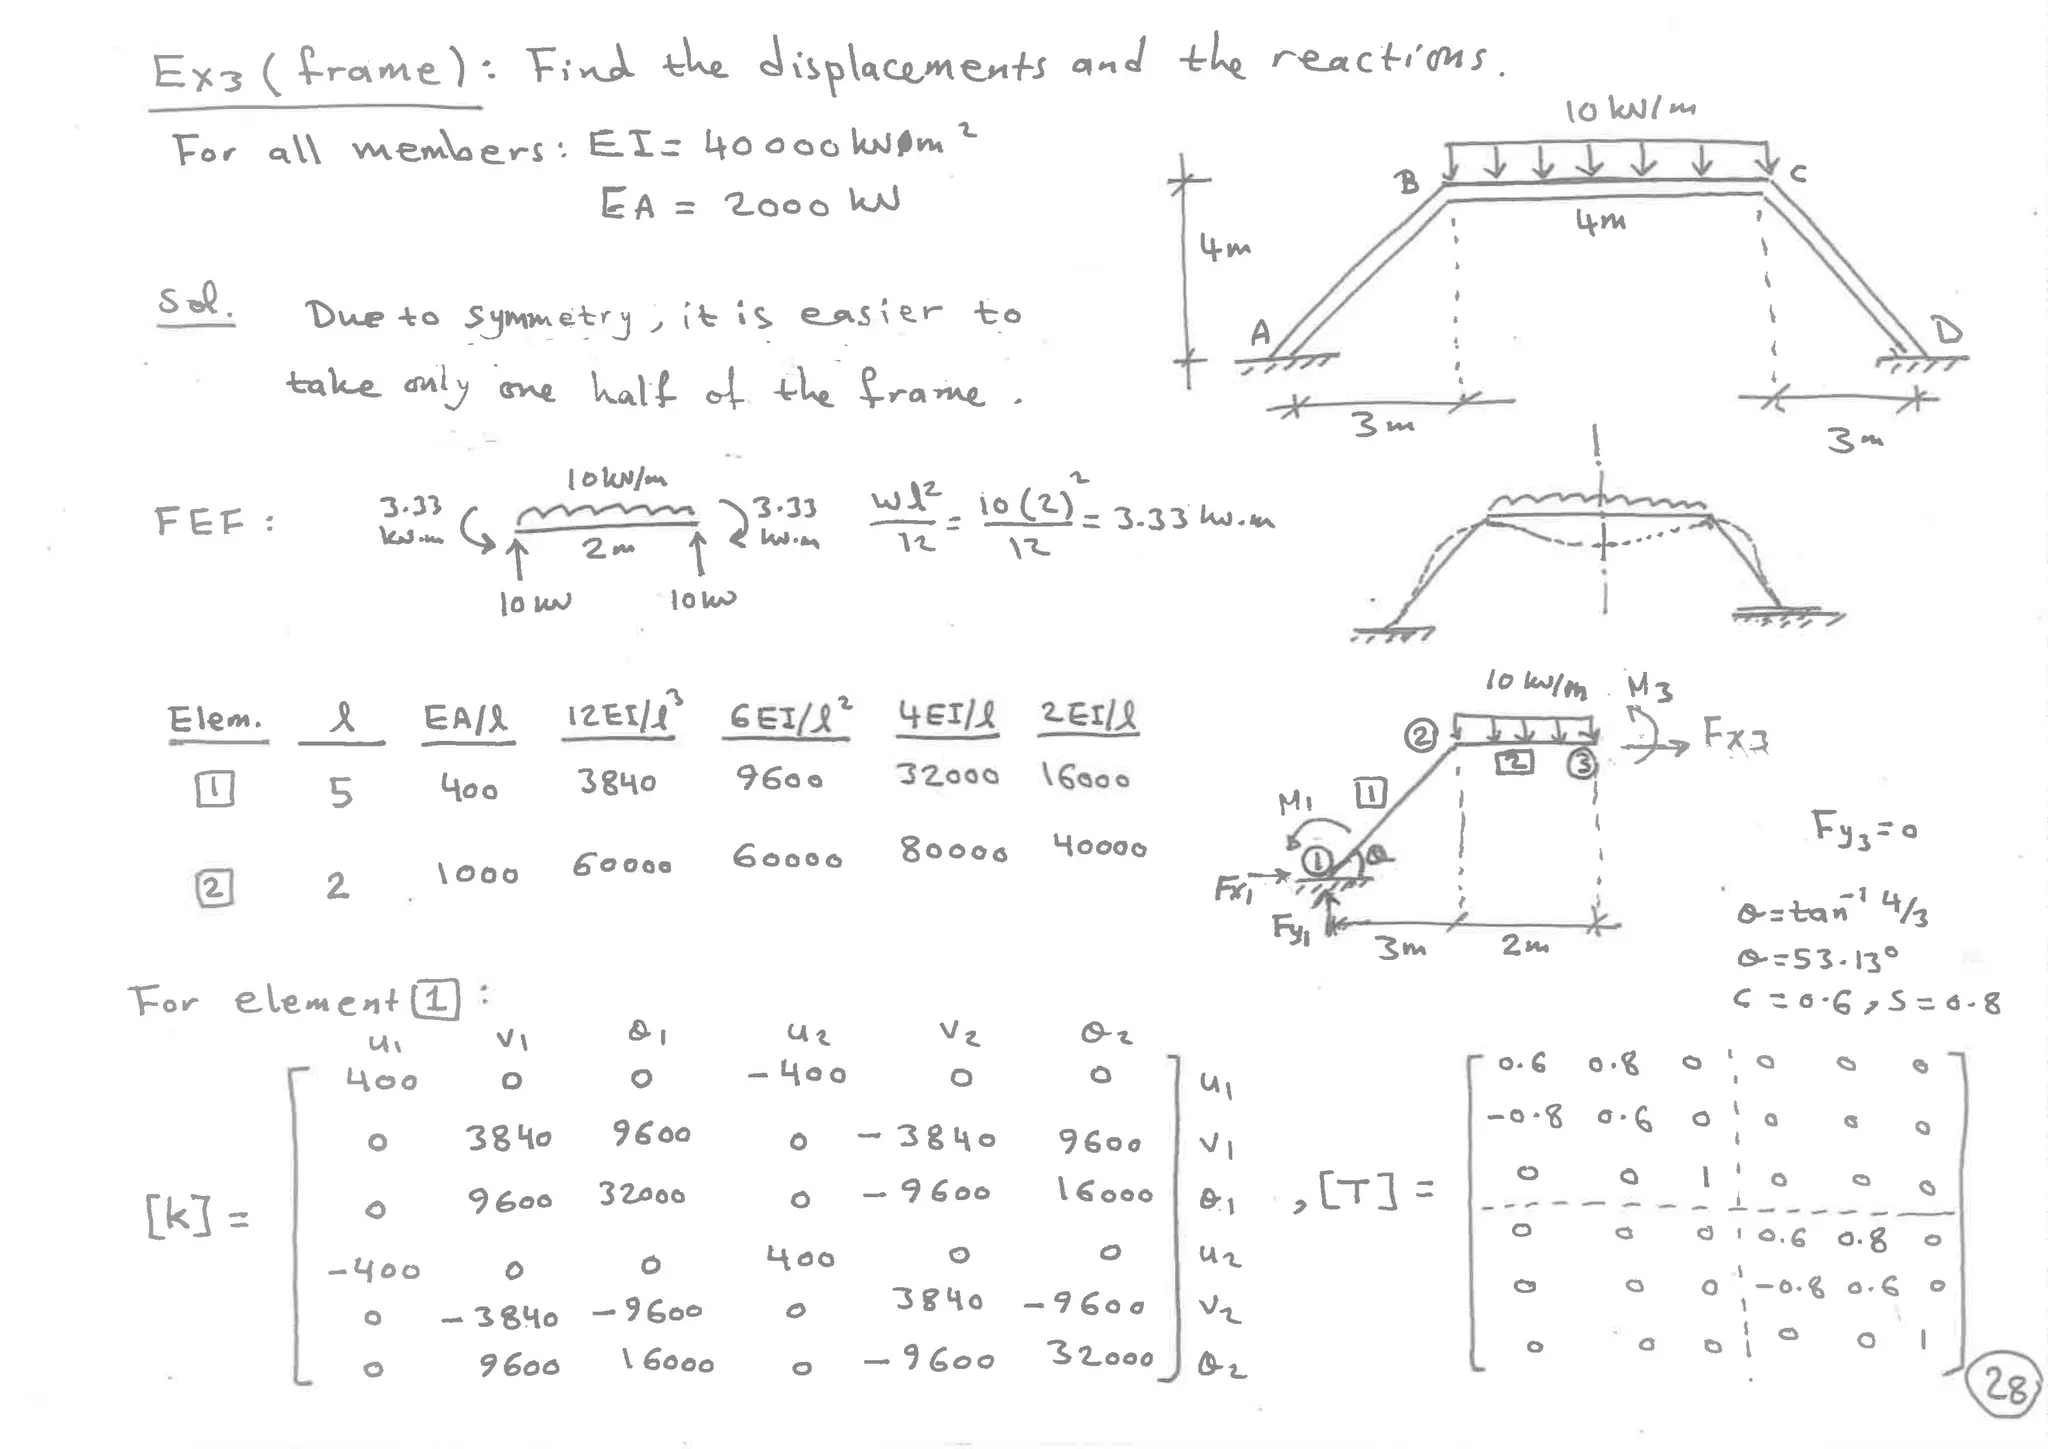 Ex3 (frame): Find the displacements and the reactions.
For all members: EI = 40000 kN m²
EA = 2000 kN
10 kN/m
B
C
4m
4m
A
D
3m
3m
Sol. Due to symmetry, it is easier to
take only one half of the frame.
FEF:
10 kN/m
3.33 kN.m
3.33 kN.m
2m
10 kN
10 kN
wl²/12 = 10(2)²/12 = 3.33 kN.m
Elem. l EA/l 12EI/l³ 6EI/l² 4EI/l 2EI/l
1 5 400 3840 9600 32000 16000
2 2 1000 60000 60000 80000 40000
10 kN/m
M3
Fx3
2
2
3
M1
1
1
θ
Fx1
Fy1
3m
2m
Fy3 = 0
θ = tan⁻¹ 4/3
θ = 53.13°
C = 0.6, S = 0.8
For element 1:
u1 v1 θ1 u2 v2 θ2
400 0 0 -400 0 0 u1
0 3840 9600 0 -3840 9600 v1
[k] = 0 9600 32000 0 -9600 16000 θ1
-400 0 0 400 0 0 u2
0 -3840 -9600 0 3840 -9600 v2
0 9600 16000 0 -9600 32000 θ2
, [T] =
0.6 0.8 0 0 0 0
-0.8 0.6 0 0 0 0
0 0 1 0 0 0
0 0 0 0.6 0.8 0
0 0 0 -0.8 0.6 0
0 0 0 0 0 1
28